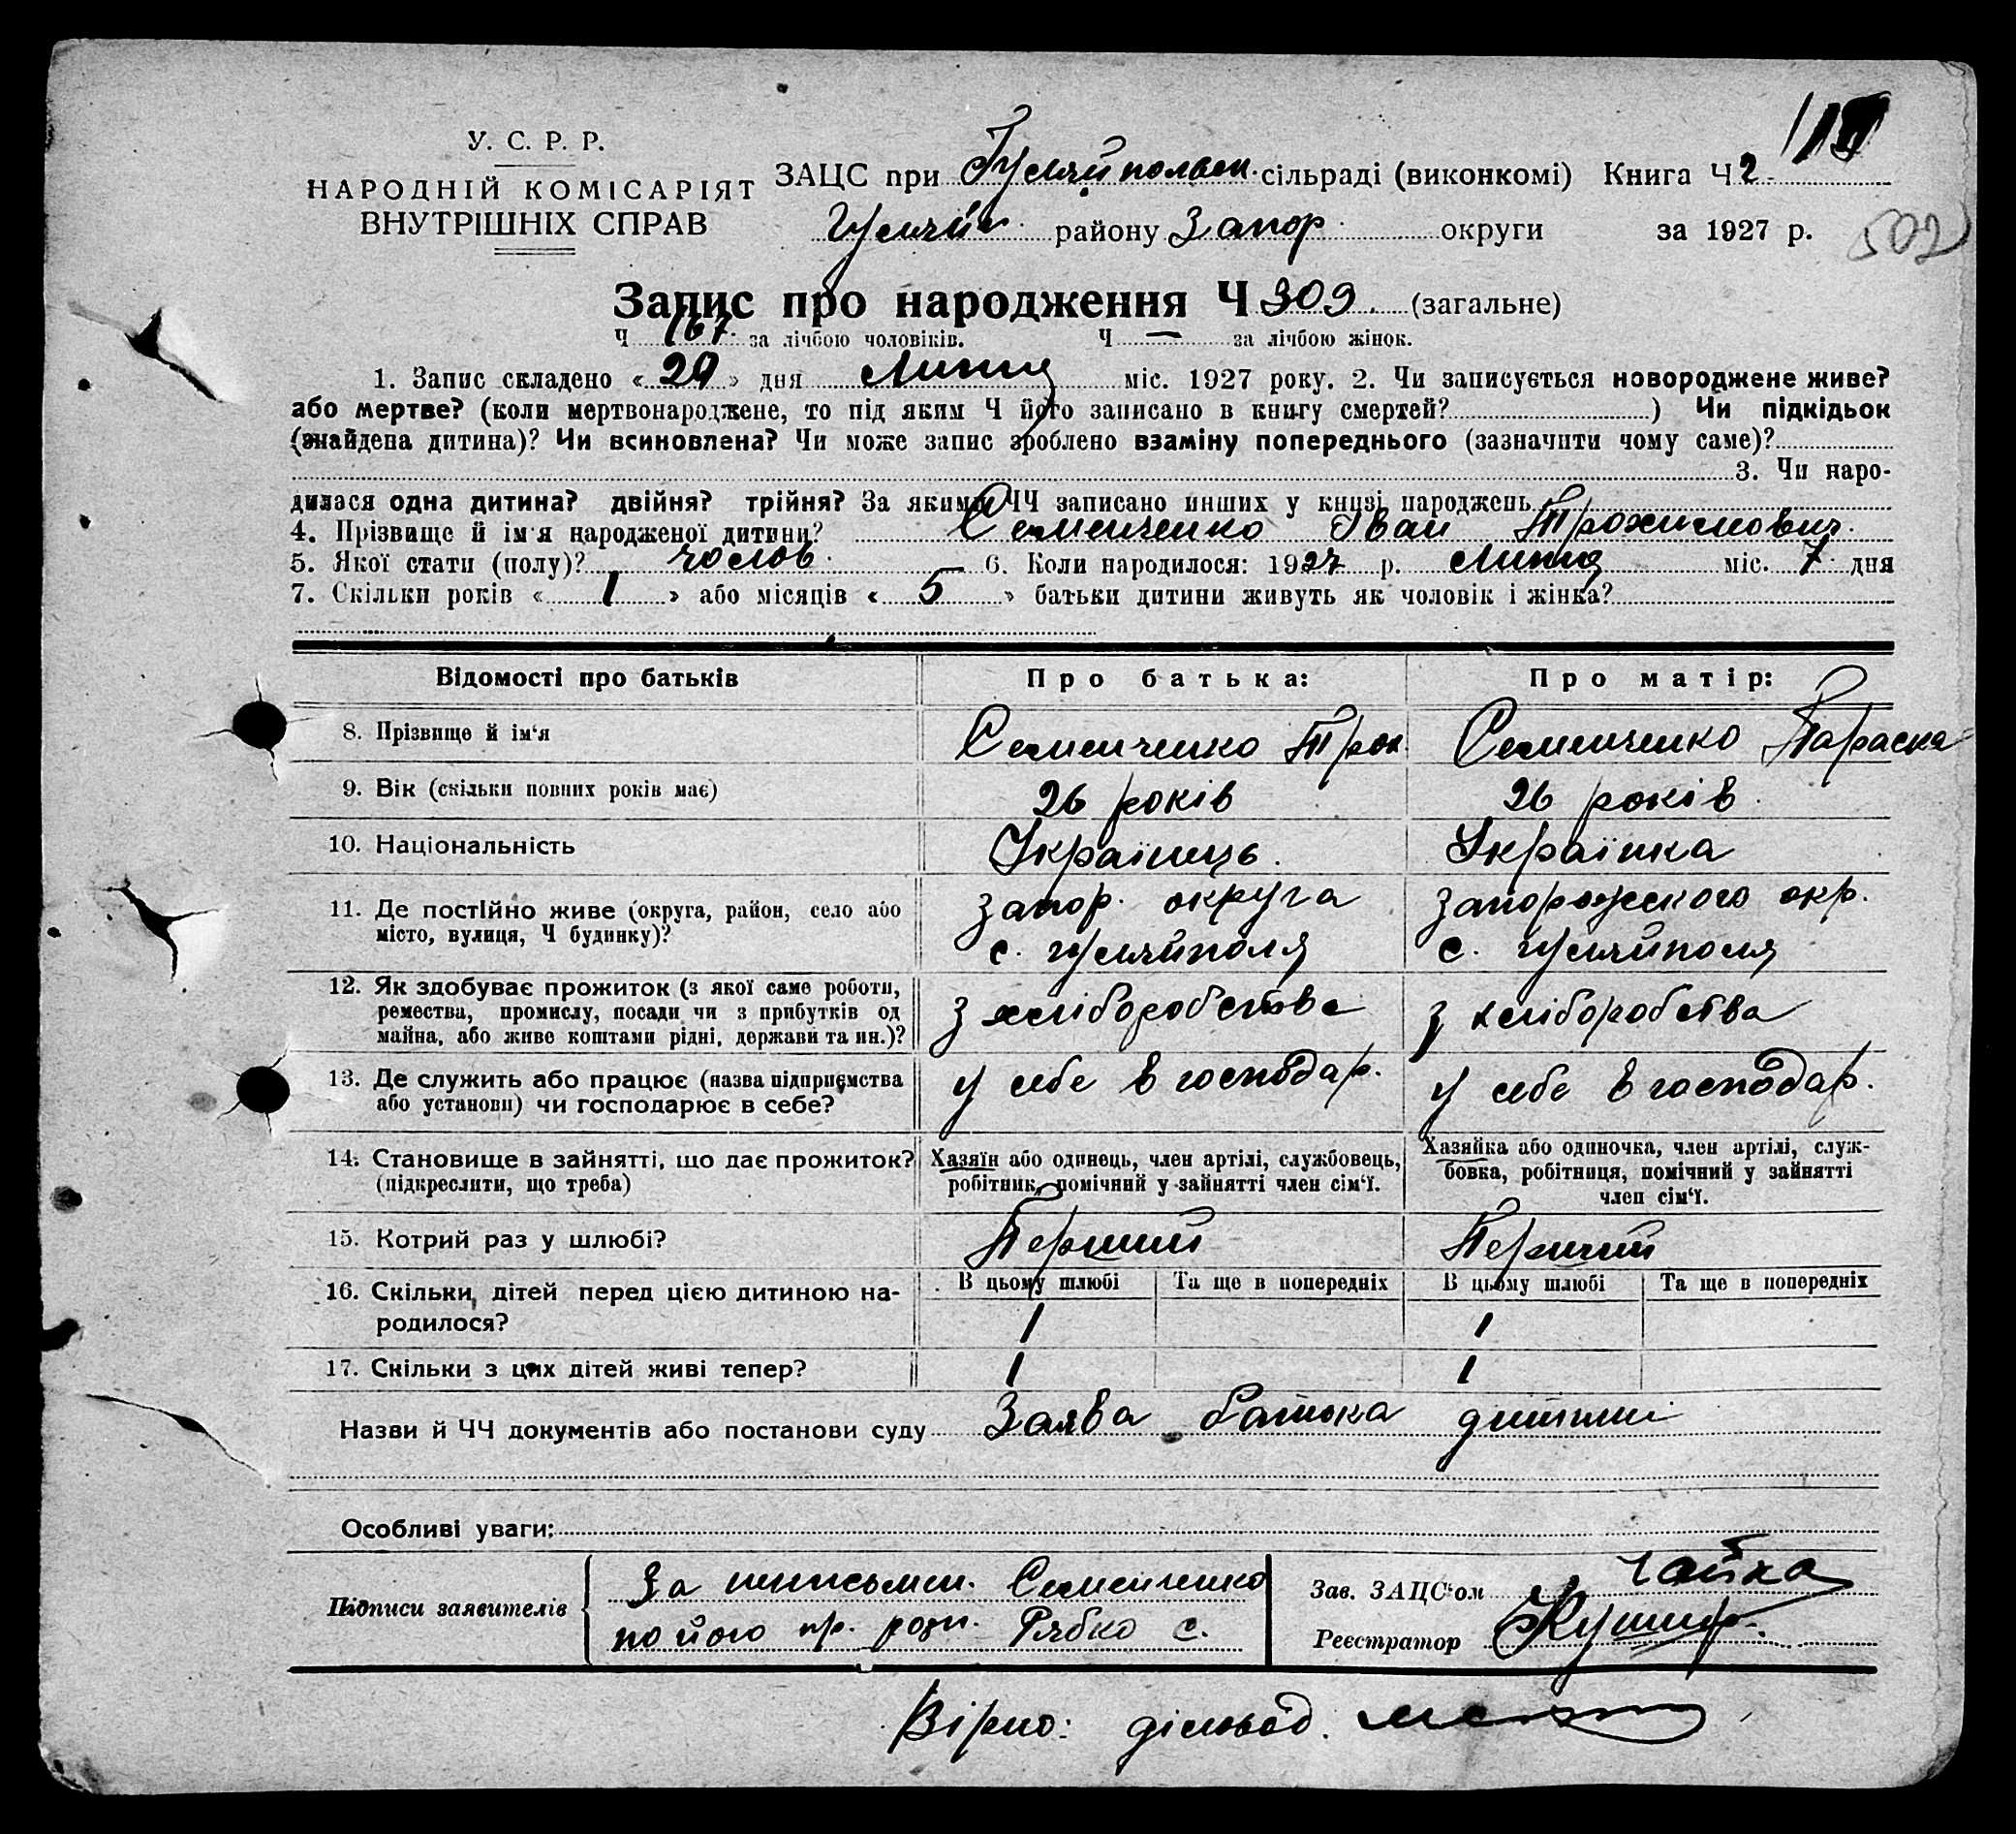 У. С. Р. Р.
НАРОДНІЙ КОМІСАРІЯТ
ВНУТРІШНІХ СПРАВ
ЗАЦС при Гуляйпольськ. сільраді (виконкомі) Книга Ч 2
Гуляйп. району Запор. округи за 1927 р.
502
Запис про народження Ч 309 (загальне)
Ч 167 за лічбою чоловіків. Ч — за лічбою жінок.
1. Запис складено «29» дня Липня міс. 1927 року. 2. Чи записується новороджене живе?
або мертве? (коли мертвонароджене, то під яким Ч його записано в книгу смертей? ) Чи підкідьок
(знайдена дитина)? Чи всиновлена? Чи може запис зроблено взаміну попереднього (зазначити чому саме)?
3. Чи наро-
дилася одна дитина? двійня? трійня? За якими ЧЧ записано инших у книзі народжень
4. Прізвище й ім'я народженої дитини? Семенченко Іван Трохимович.
5. Якої стати (полу)? чолов. 6. Коли народилося: 1927 р. Липня міс. 7 дня
7. Скільки років «1» або місяців «5» батьки дитини живуть як чоловік і жінка?
Відомості про батьків Про батька: Про матір:
8. Прізвище й ім'я Семенченко Трох. Семенченко Параска
9. Вік (скільки повних років має) 26 років 26 років.
10. Національність Українець. Українка
11. Де постійно живе (округа, район, село або Запор. округа Запорожського окр.
місто, вулиця, Ч будинку)? с. Гуляйполя с. Гуляйполя
12. Як здобуває прожиток (з якої саме роботи,
ремества, промислу, посади чи з прибутків од з хліборобства з хліборобства
майна, або живе коштами рідні, держави та ин.)?
13. Де служить або працює (назва підприємства у себе в господар. у себе в господар.
або установи) чи господарює в себе?
14. Становище в зайнятті, що дає прожиток? Хазяїн або одинець, член артілі, службовець, Хазяйка або одиночка, член артілі, служ-
(підкреслити, що треба) робітник, помічний у зайнятті член сім'ї. бовка, робітниця, помічний у зайнятті
член сім'ї.
15. Котрий раз у шлюбі? Перший Перший
16. Скільки дітей перед цією дитиною на- В цьому шлюбі Та ще в попередніх В цьому шлюбі Та ще в попередніх
родилося? 1 1
17. Скільки з цих дітей живі тепер? 1 1
Назви й ЧЧ документів або постанови суду Заява батька дитини
Особливі уваги:
Підписи заявителів За письмен. Семенченко Зав. ЗАЦС'ом Чайка
по його пр. розп. Рябко С. Реєстратор Кушнір.
Вірно: діловод.